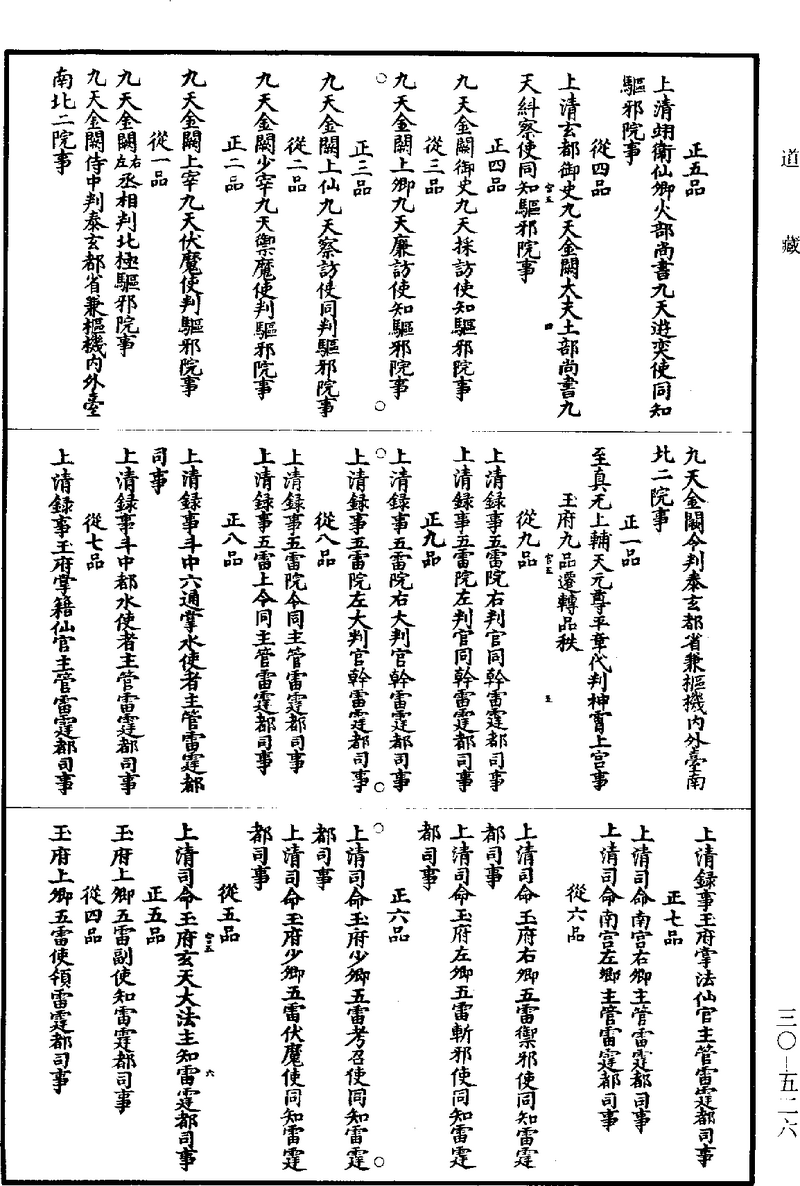 道藏
正五品
上清翊衛仙卿火部尚書九天遊奕使同知
驅邪院事
從四品
上清玄都御史九天金闕大夫土部尚書九
天糾察使同知驅邪院事
正四品
九天金闕御史九天採訪使知驅邪院事
從三品
九天金闕上卿九天廉訪使知驅邪院事
正三品
九天金闕上仙九天察訪使同判驅邪院事
從二品
九天金闕少宰九天禦魔使判驅邪院事
正二品
九天金闕上宰九天伏魔使判驅邪院事
從一品
九天金闕左右丞相判北極驅邪院事
九天金闕侍中判泰玄都省兼樞機內外臺
南北二院事
九天金闕令判泰玄都省兼樞機內外臺南
北二院事
正一品
至真无上輔天元尊平章代判神霄上宮事
玉府九品遷轉品秩
從九品
上清録事五雷院右判官同幹雷霆都司事
上清録事五雷院左判官同幹雷霆都司事
正九品
上清録事五雷院右大判官幹雷霆都司事
上清録事五雷院左大判官幹雷霆都司事
從八品
上清録事五雷院令同主管雷霆都司事
上清録事五雷上令同主管雷霆都司事
正八品
上清録事斗中六通掌水使者主管雷霆都
司事
上清録事斗中都水使者主管雷霆都司事
從七品
上清録事玉府掌籍仙官主管雷霆都司事
上清録事玉府掌法仙官主管雷霆都司事
正七品
上清司命南宮右卿主管雷霆都司事
上清司命南宮左卿主管雷霆都司事
從六品
上清司命玉府右卿五雷禦邪使同知雷霆
都司事
上清司命玉府左卿五雷斬邪使同知雷霆
都司事
正六品
上清司命玉府少卿五雷考召使同知雷霆
都司事
上清司命玉府少卿五雷伏魔使同知雷霆
都司事
從五品
上清司命玉府玄天大法主知雷霆都司事
正五品
玉府上卿五雷副使知雷霆都司事
從四品
玉府上卿五雷使領雷霆都司事
三〇—五二六